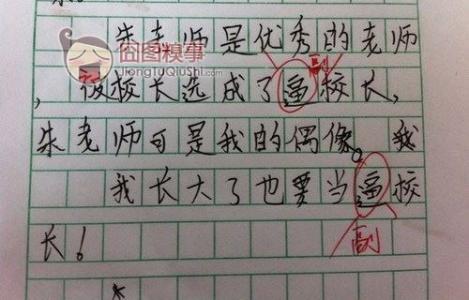 囧图糗事
JiongTuQiuShi.com
朱老师是优秀的老师
副
，被校长选成了逼校长，
朱老师可是我的偶像。我
我长大了也要当逼校
长！
副